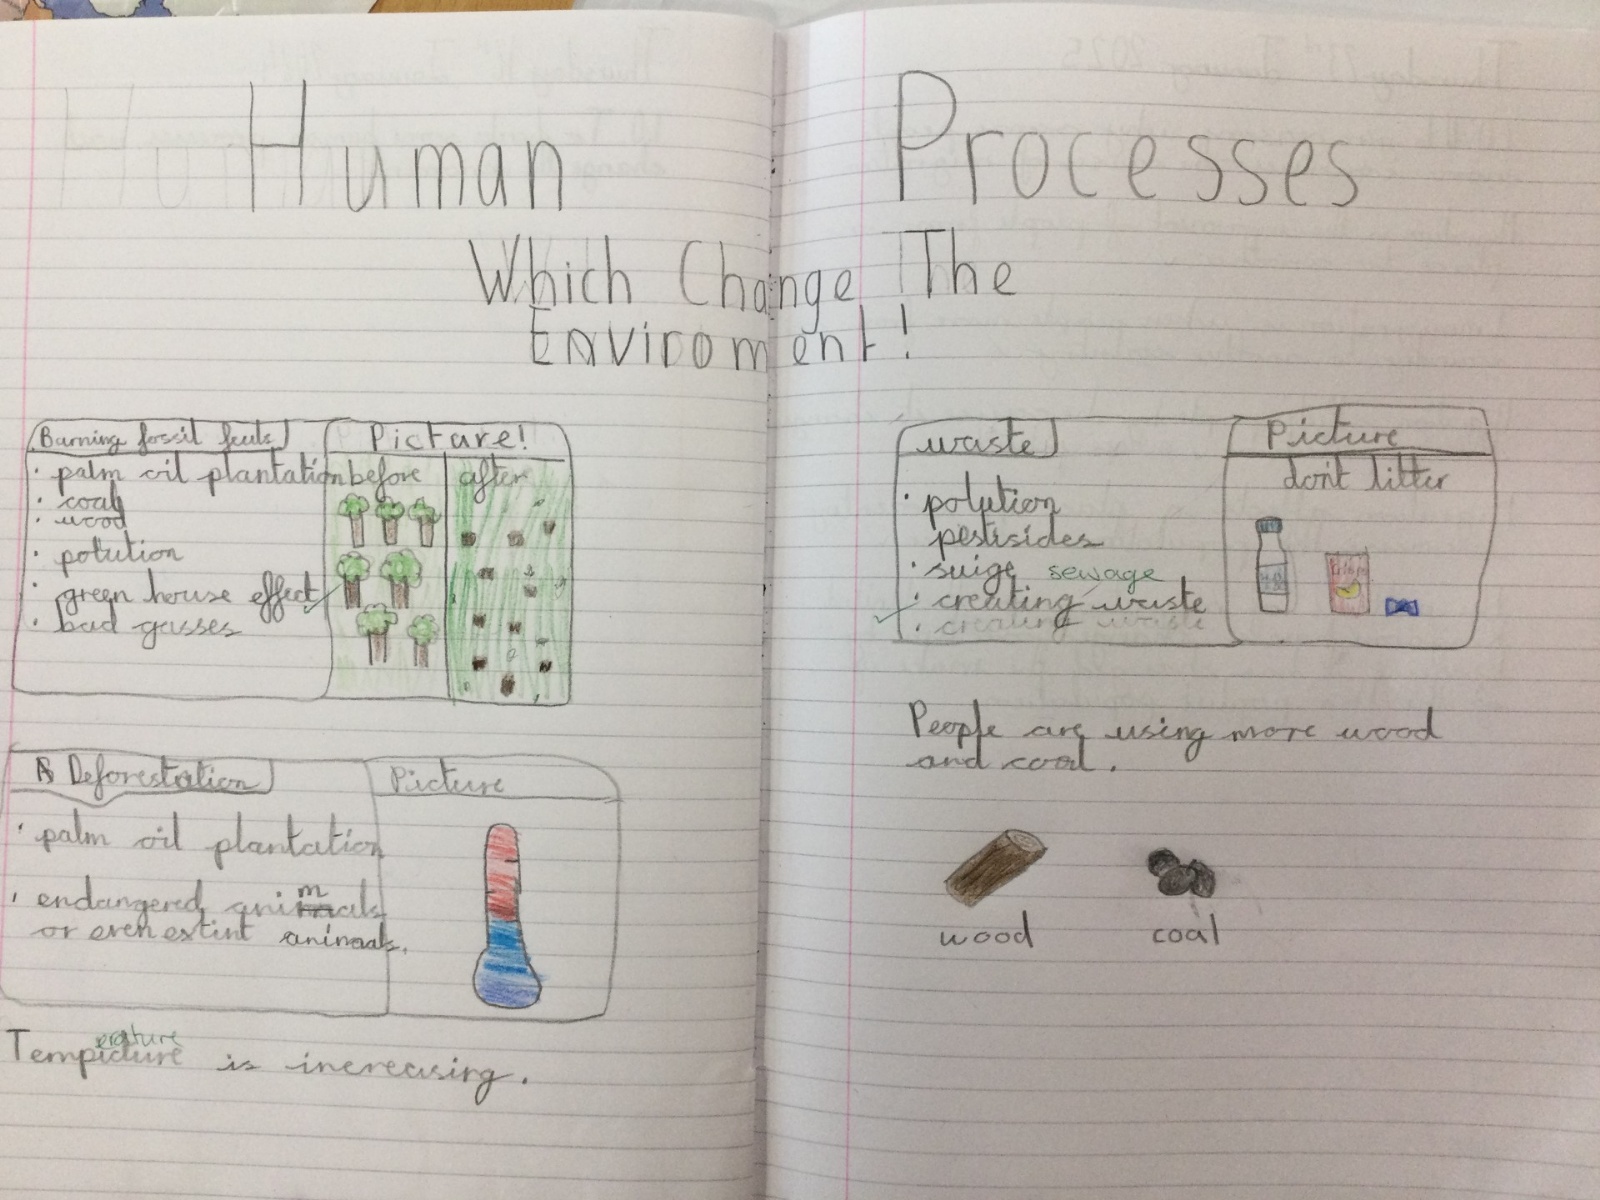 Human Processes
Which Change The
Enviroment!
Burning fossil feuls
Picture!
· palm oil plantation
· coal
· wood
· polution
· green house effect
· bad gasses
before after
Deforestation
Picture
· palm oil plantation
· endangered animals
or even extint animals.
Tempicture is increasing.
erature
waste
Picture
· polution
pestisides
· suige sewage
· creating waste
· creating waste
don't litter
People are using more wood
and coal.
wood coal